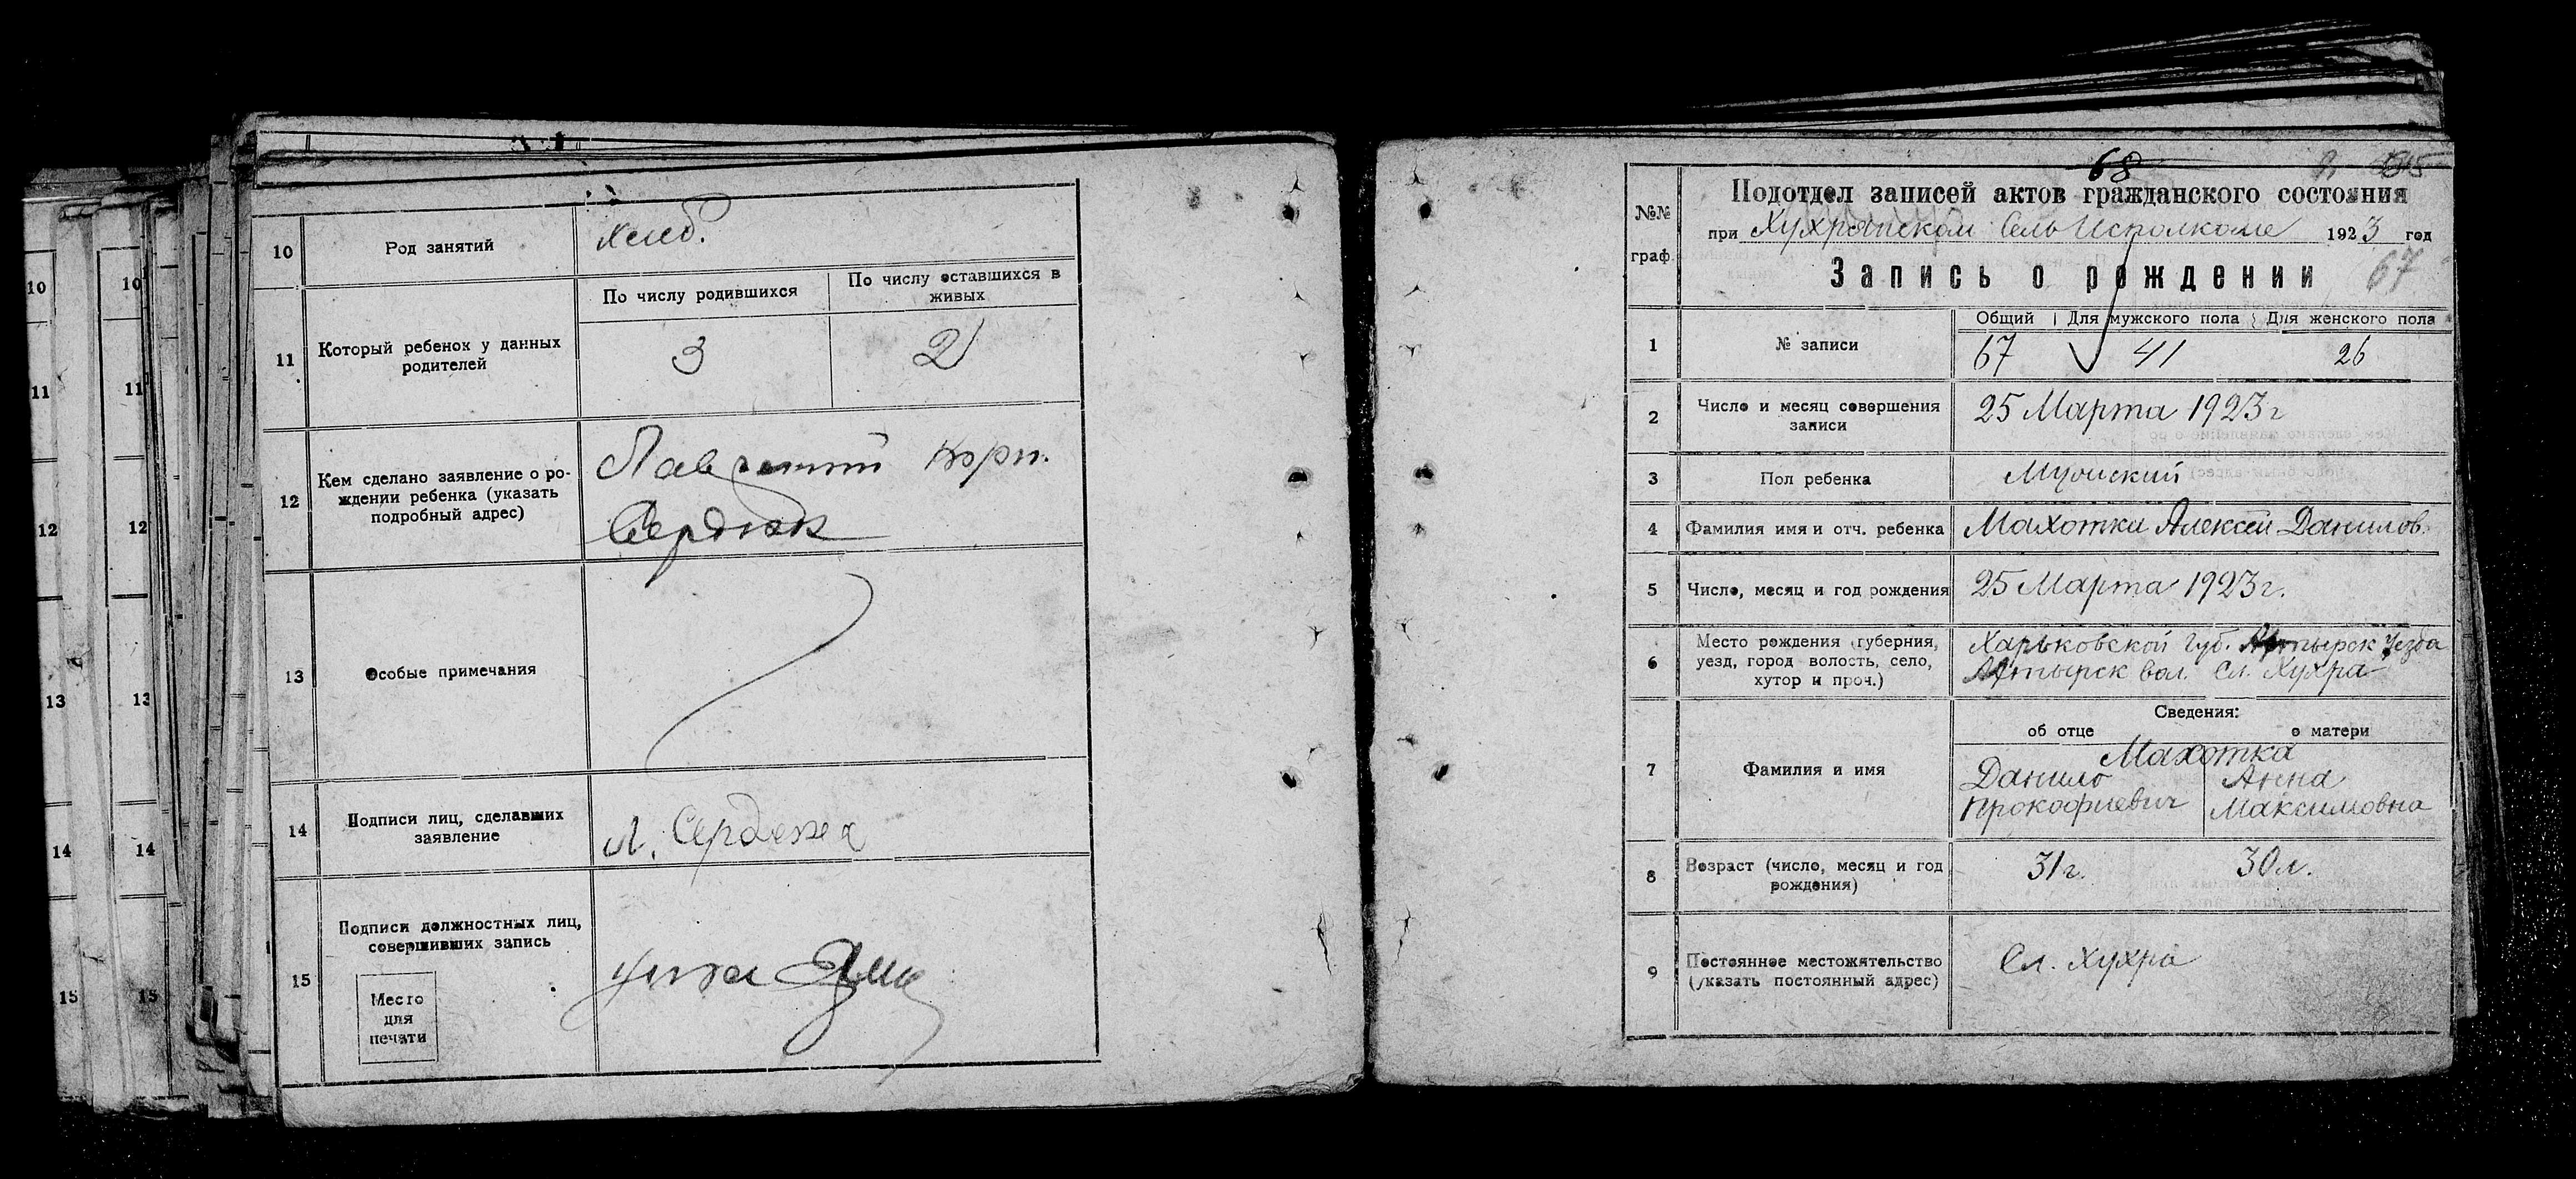 10
Род занятий
хлеб.
11
Который ребенок у данных
родителей
По числу родившихся
По числу оставшихся в
живых
3
2
12
Кем сделано заявление о ро-
ждении ребенка (указать
подробный адрес)
Лаврентий Корн.
Сердюк
13
Особые примечания
14
Подписи лиц, сделавших
заявление
Л. Сердюк
15
Подписи должностных лиц,
совершивших запись
Место
для
печати
10
10
11
11
12
12
13
13
14
14
15
15
68
№№
граф.
Подотдел записей актов гражданского состояния
при Хухрянском СельИсполкоме 1923 год
Запись о рождении 67
1
№ записи
Общий Для мужского пола Для женского пола
67 41 26
2
Число и месяц совершения
записи
25 Марта 1923 г
3
Пол ребенка
Мужский
4
Фамилия имя и отч. ребенка
Махотка Алексей Данилов.
5
Число, месяц и год рождения
25 Марта 1923 г.
6
Место рождения (губерния,
уезд, город волость, село,
хутор и проч.)
Харьковской Губ. Ахтырск Уезда
Ахтырск вол. Сл. Хухра
7
Фамилия и имя
Сведения:
об отце
о матери
Махотка
Данило
Прокофиевич
Анна
Максимовна
8
Возраст (число, месяц и год
рождения)
31 г.
30 л.
9
Постоянное местожительство
(указать постоянный адрес)
Сл. Хухра